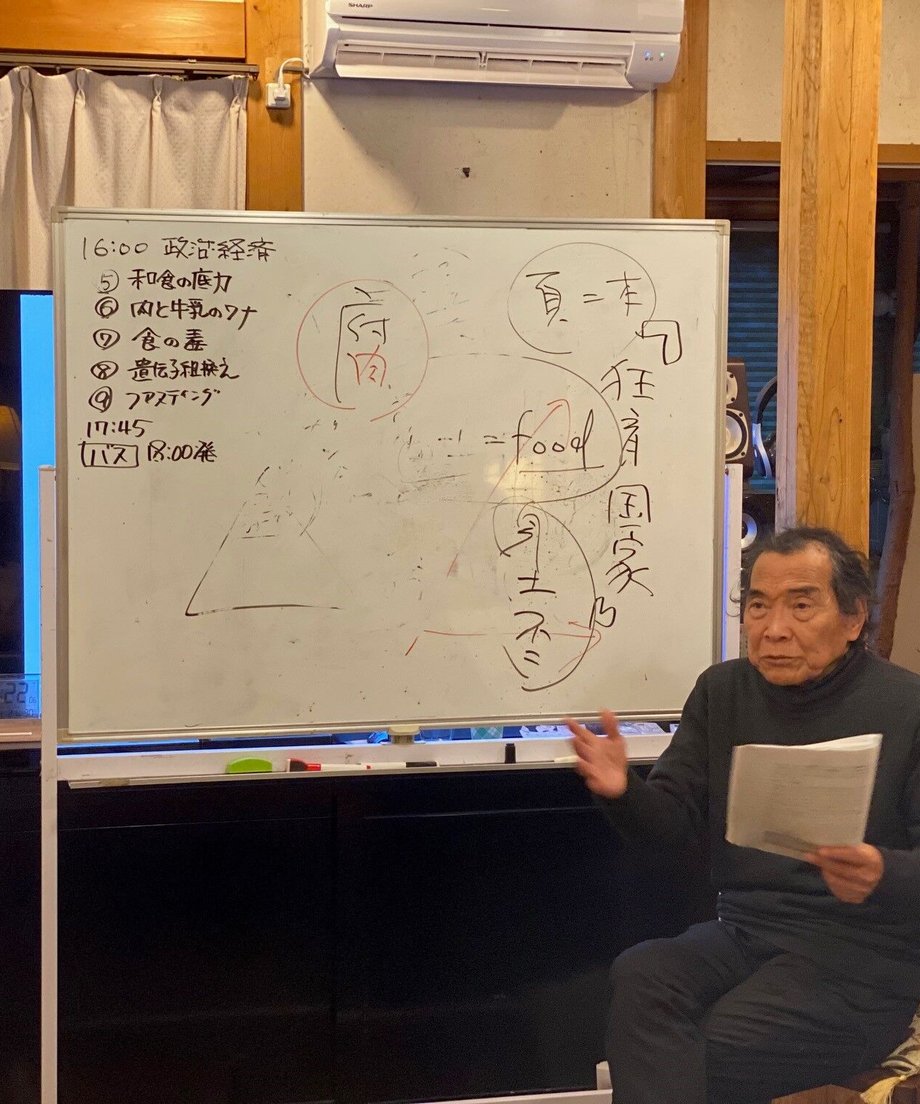 SHARP
16:00 政治・経済
⑤ 和食の底力
⑥ 肉と牛乳のワナ
⑦ 食の毒
⑧ 遺伝子組換え
⑨ ファスティング
17:45
バス 18:00発
府
肉
頁=本
= food
身土不二
狂育国家
22